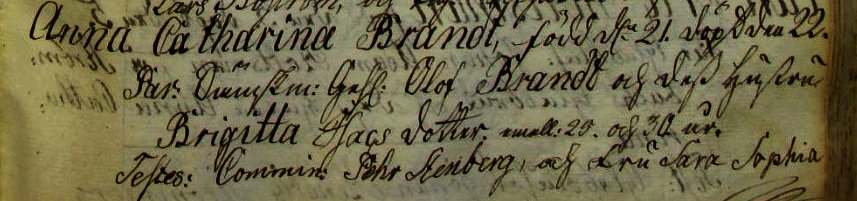 Anna Catharina Brandt, född d. 21. döpt den 22.
Par: Gesl: Olof Brandt och deß hustru
Brigitta dotter. emell: 20. och 30 år.
Testes: Commin: Pehr Stenberg, och Fru Sara Sophia